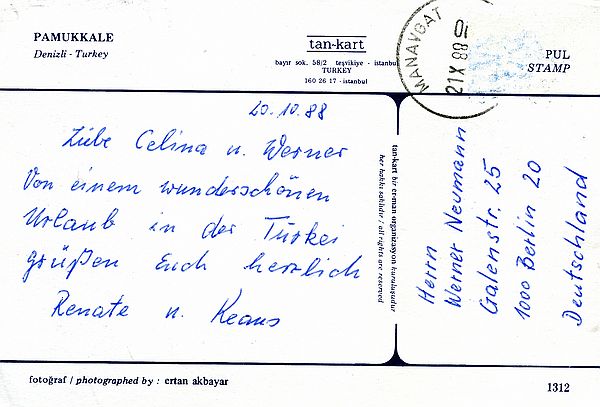 PAMUKKALE
Denizli - Turkey
tan-kart
bayır sok. 58/2 teşvikiye - istanbul
TURKEY
160 26 17 - istanbul
MANAVGAT
21 X 88 01
PUL
STAMP
20.10.88
Liebe Celina u. Werner
Von einem wunderschönen
Urlaub in der Türkei
grüßen Euch herzlich
Renate u. Klaus
tan-kart bir roman organizasyon kuruluşudur
her hakkı saklıdır / all rights are reserved
Herrn
Werner Neumann
Galenstr. 25
1000 Berlin 20
Deutschland
fotoğraf / photographed by : ertan akbayar
1312